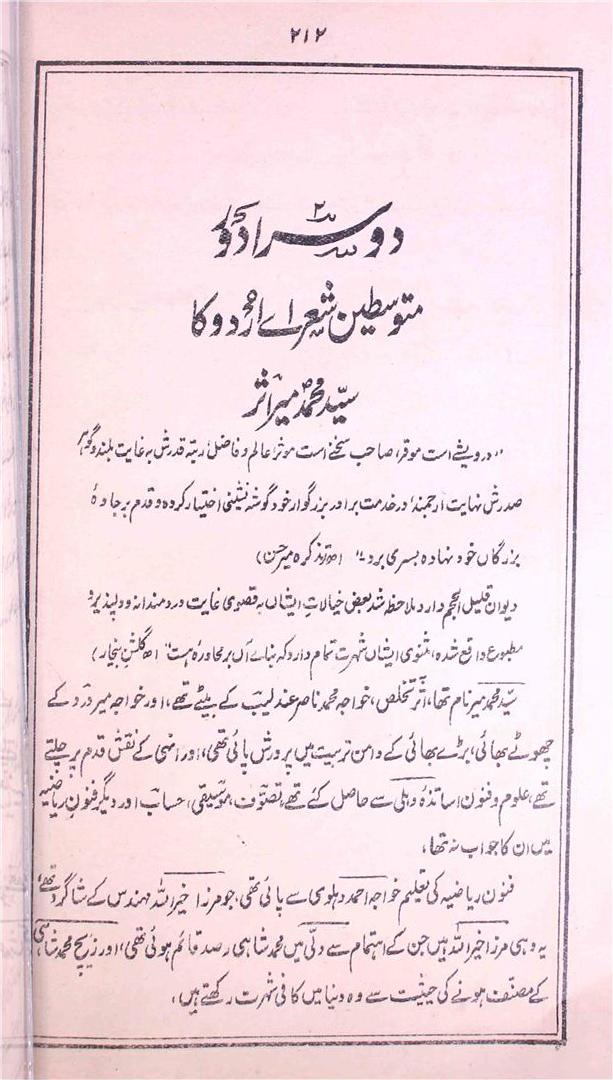 ۲۱۲
دوسرا دور
متوسطین شعراے اردو کا
سیّد محمد میر اثر
"درویشے است موقر، صاحب سخنے است موثر، عالم و فاضل، رتبۂ قدرش بہ غایت بلند و گوہر
صدرش نہایت ارجمند در خدمت برادر بزرگوار خود گوشہ نشینی اختیار کردہ و قدم بر جادۂ
بزرگان خود نہادہ بسر می برد۔" (تذکرہ میر حسن)
دیوان قلیل الحجم دارد ملاحظہ شد بعض خیالات ایشاں بہ قصویٰ غایت دردمندانہ و دلپذیر و
مطبوع واقع شدہ، مثنوی ایشاں شہرت تمام دارد کہ بناے آں بر محاورہ است" (گلشن بیخار)
سیّد محمد میر نام تھا، اثر تخلص، خواجہ محمد ناصر عندلیب کے بیٹے تھے، اور خواجہ میر درد کے
چھوٹے بھائی، بڑے بھائی کے دامن تربیت میں پرورش پائی تھی، اور انھی کے نقش قدم پر چلتے
تھے، علوم و فنون اساتذۂ دہلی سے حاصل کئے تھے، تصوّف، موسیقی، حساب اور دیگر فنون ریاضیہ
میں ان کا جواب نہ تھا،
فنون ریاضیہ کی تعلیم خواجہ احمد دہلوی سے پائی تھی، جو مرزا خیر اللہ مہندس کے شاگرد تھے،
یہ وہی مرزا خیر اللہ ہیں جن کے اہتمام سے دلّی میں محمد شاہی رصد قائم ہوئی تھی، اور زیچ محمد شاہی
کے مصنف ہونے کی حیثیت سے وہ دنیا میں کافی شہرت رکھتے ہیں،